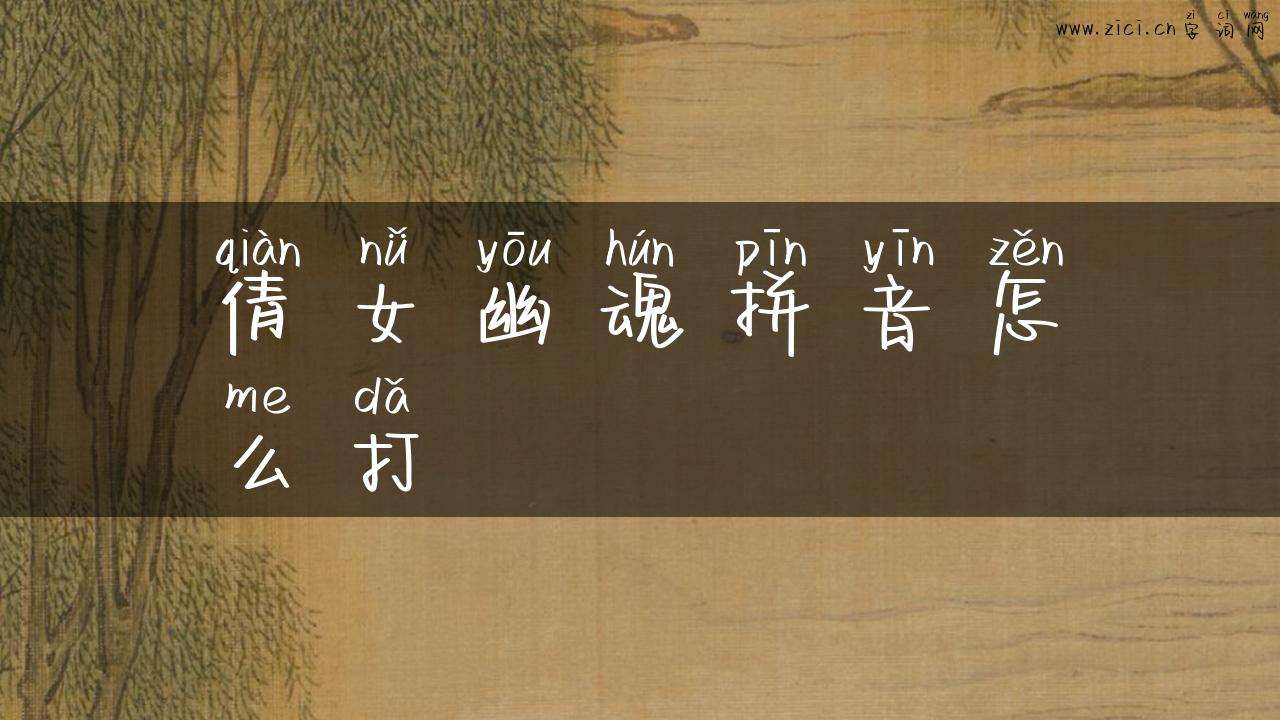 zì cí wǎng
www.zici.cn 字 词 网
qiàn nǚ yōu hún pīn yīn zěn
倩 女 幽 魂 拼 音 怎
me dǎ
么 打